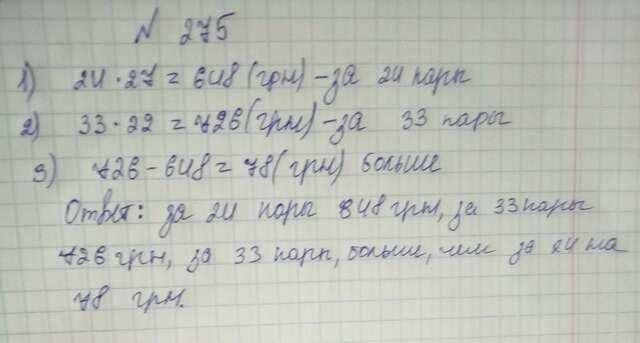 N 275
1) 24 • 27 = 648 (грн) - за 24 пары
2) 33 • 22 = 726 (грн) - за 33 пары
3) 726 - 648 = 78 (грн) больше
Ответ: за 24 пары 648 грн, за 33 пары
726 грн, за 33 пары, больше, чем за 24 на
78 грн.